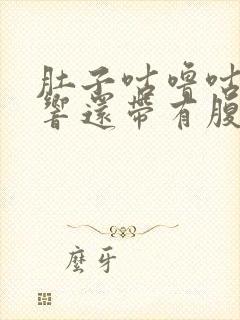 肚子咕噜咕
響還帶有腹
麼牙